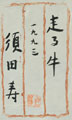 走る牛
一九九三
須田寿